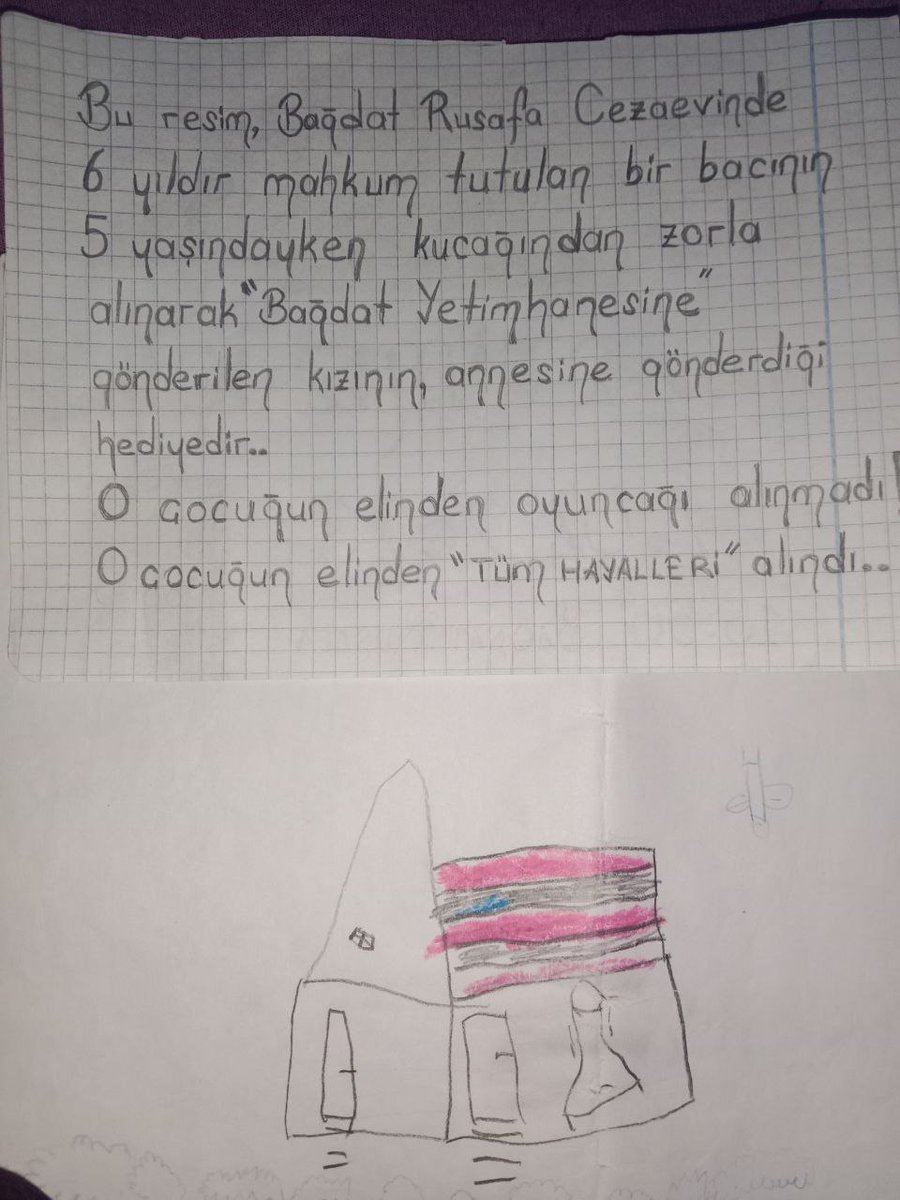 Bu resim, Bağdat Rusafa Cezaevinde
6 yıldır mahkum tutulan bir bacının
5 yaşındayken kucağından zorla
alınarak "Bağdat Yetimhanesine"
gönderilen kızının, annesine gönderdiği
hediyedir..
O çocuğun elinden oyuncağı alınmadı!
O çocuğun elinden "TÜM HAYALLERİ" alındı..